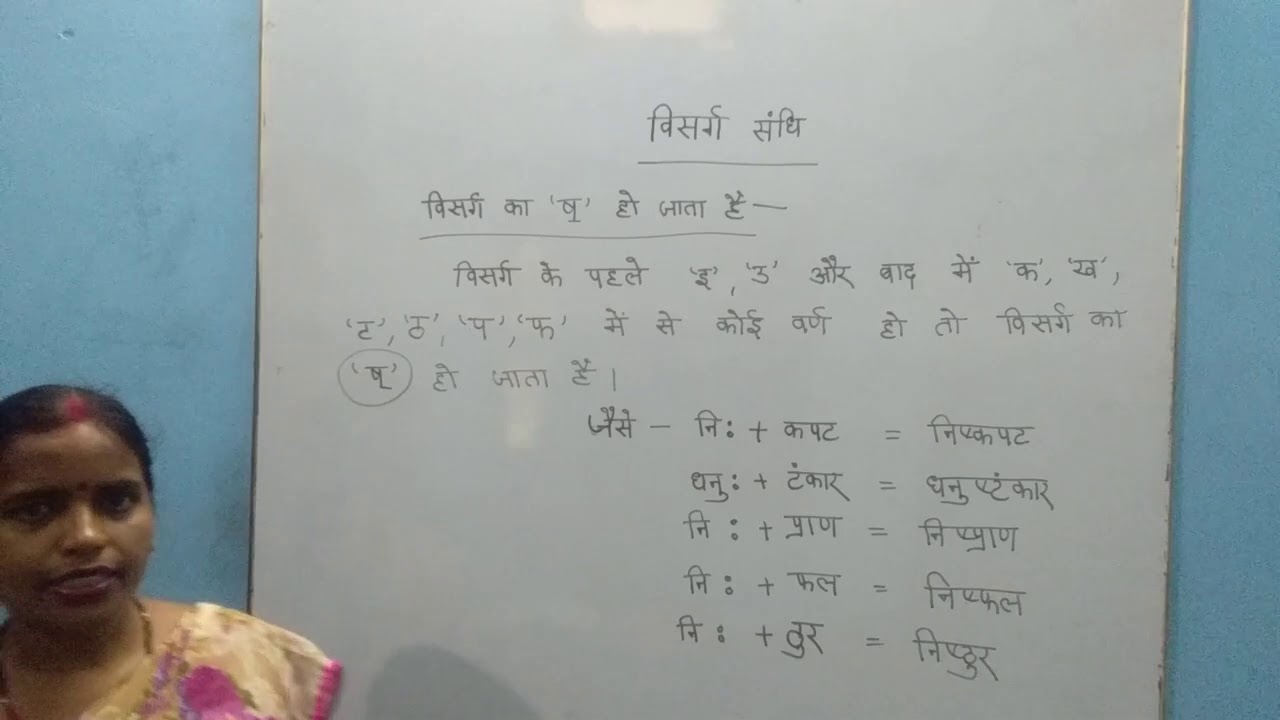 विसर्ग संधि
विसर्ग का 'ष्' हो जाता है —
विसर्ग के पहले 'इ', 'उ' और बाद में 'क', 'ख',
'ट', 'ठ', 'प', 'फ' में से कोई वर्ण हो तो विसर्ग का
'ष्' हो जाता है।
जैसे - नि: + कपट = निष्कपट
धनु: + टंकार = धनुष्टंकार
नि: + प्राण = निष्प्राण
नि: + फल = निष्फल
नि: + ठुर = निष्ठुर